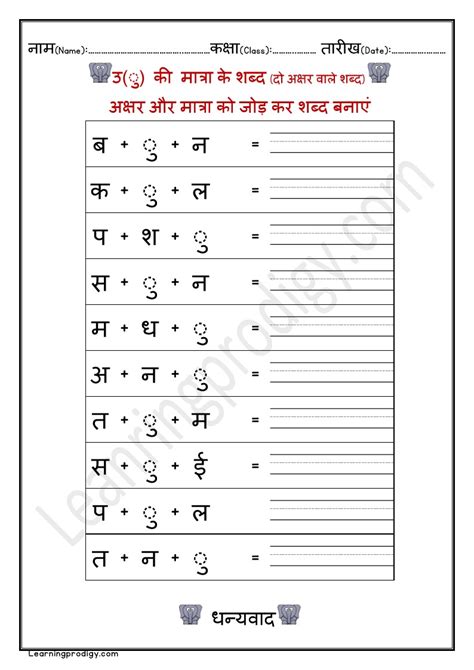 नाम(Name):............................कक्षा(Class):................ तारीख(Date):................
उ(ु) की मात्रा के शब्द (दो अक्षर वाले शब्द)
अक्षर और मात्रा को जोड़ कर शब्द बनाएं
ब + ु + न =
क + ु + ल =
प + श + ु =
स + ु + न =
म + ध + ु =
अ + न + ु =
त + ु + म =
स + ु + ई =
प + ु + ल =
त + न + ु =
Leanringprodigy.com
धन्यवाद
Learningprodigy.com